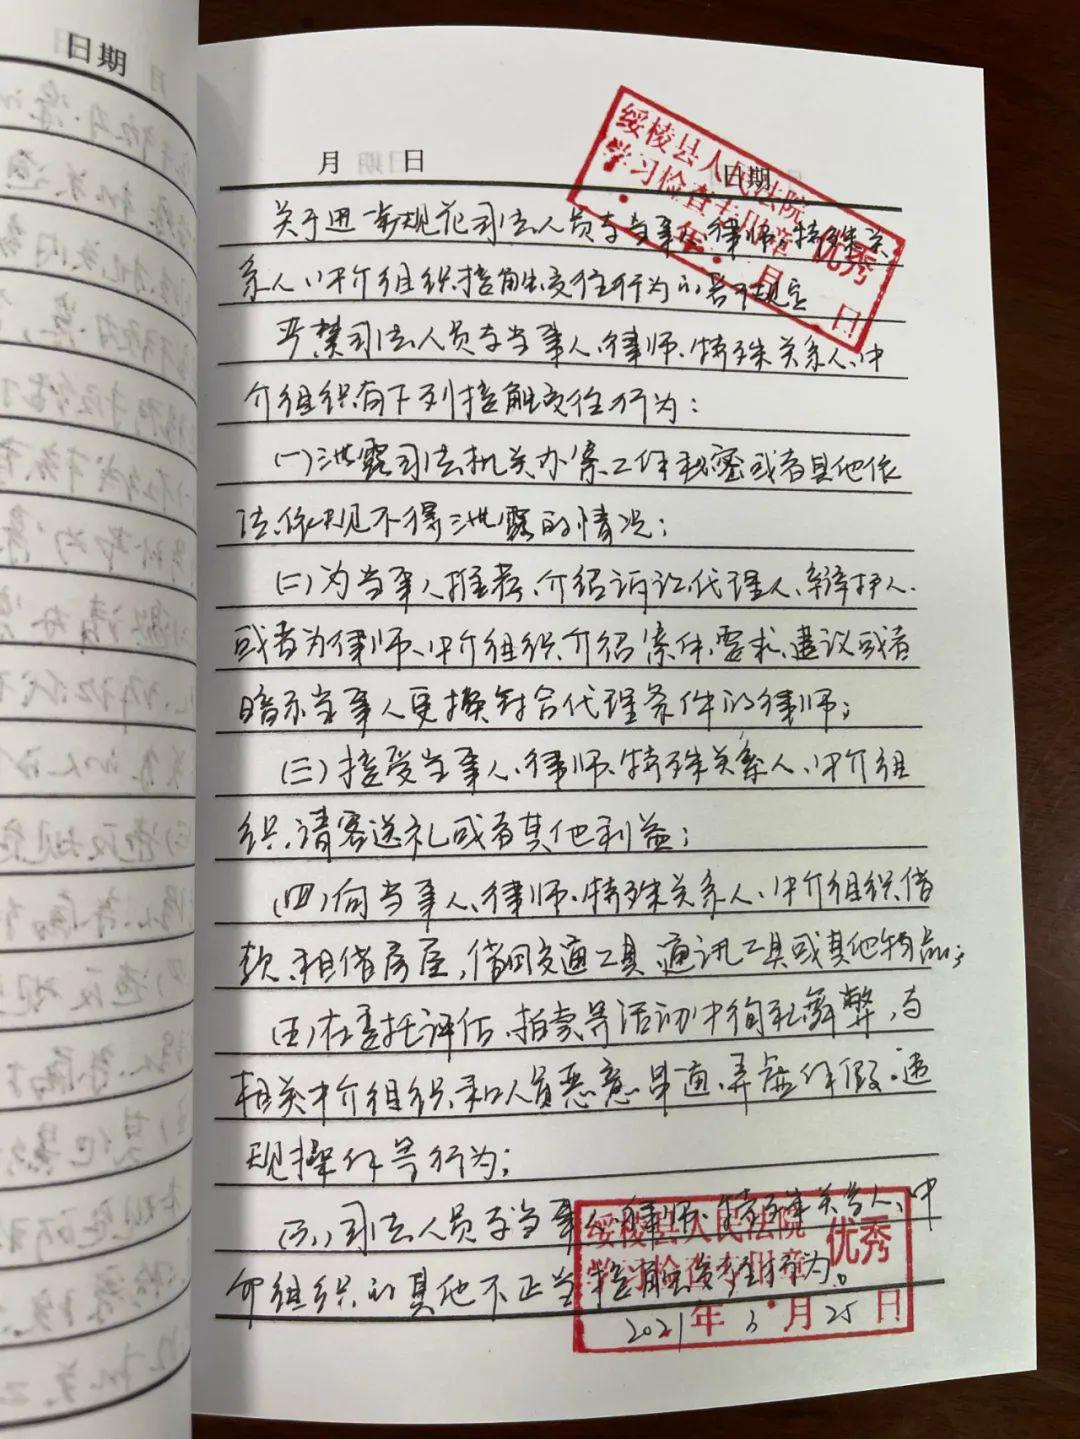 日期
月 日 日期
绥棱县人民法院
学习检查专用章 优秀
年 月 日
关于进一步规范司法人员与当事人、律师、特殊关
系人、中介组织接触交往行为的若干规定
严禁司法人员与当事人、律师、特殊关系人、中
介组织有下列接触交往行为：
(一)泄露司法机关办案工作秘密或者其他依
法依规不得泄露的情况；
(二)为当事人推荐、介绍诉讼代理人、辩护人、
或者为律师、中介组织介绍案件，要求、建议或者
暗示当事人更换符合代理条件的律师；
(三)接受当事人、律师、特殊关系人、中介组
织请客送礼或者其他利益；
(四)向当事人、律师、特殊关系人、中介组织借
款、租借房屋，借用交通工具、通讯工具或其他物品；
(五)在委托评估、拍卖等活动中徇私舞弊，与
相关中介组织和人员恶意串通、弄虚作假、违
规操作等行为；
(六)司法人员与当事人、律师、特殊关系人、中
介组织的其他不正当接触交往行为。
绥棱县人民法院
学习检查专用章 优秀
2021年3月25日